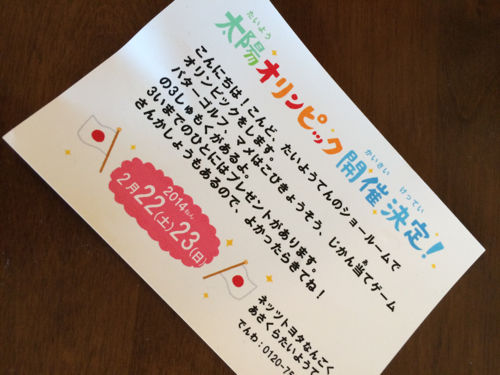 たいよう
太陽オリンピック開催決定！
かいさい けってい
こんにちは！こんど、たいようてんのショールームで
オリンピックをします。
パターゴルフ、マメはこびきょうそう、じかん当てゲーム
あ
の3しゅもくがあるよ。
3いまでのひとにはプレゼントがあります。
さんかしょうもあるので、よかったらきてね！
2014ねん
2月22(土)23(日)
ネッツトヨタなんごく
あさくらたいようて
でんわ：0120-75